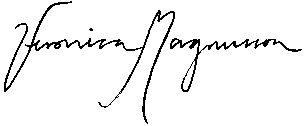 Veronica Magnusson